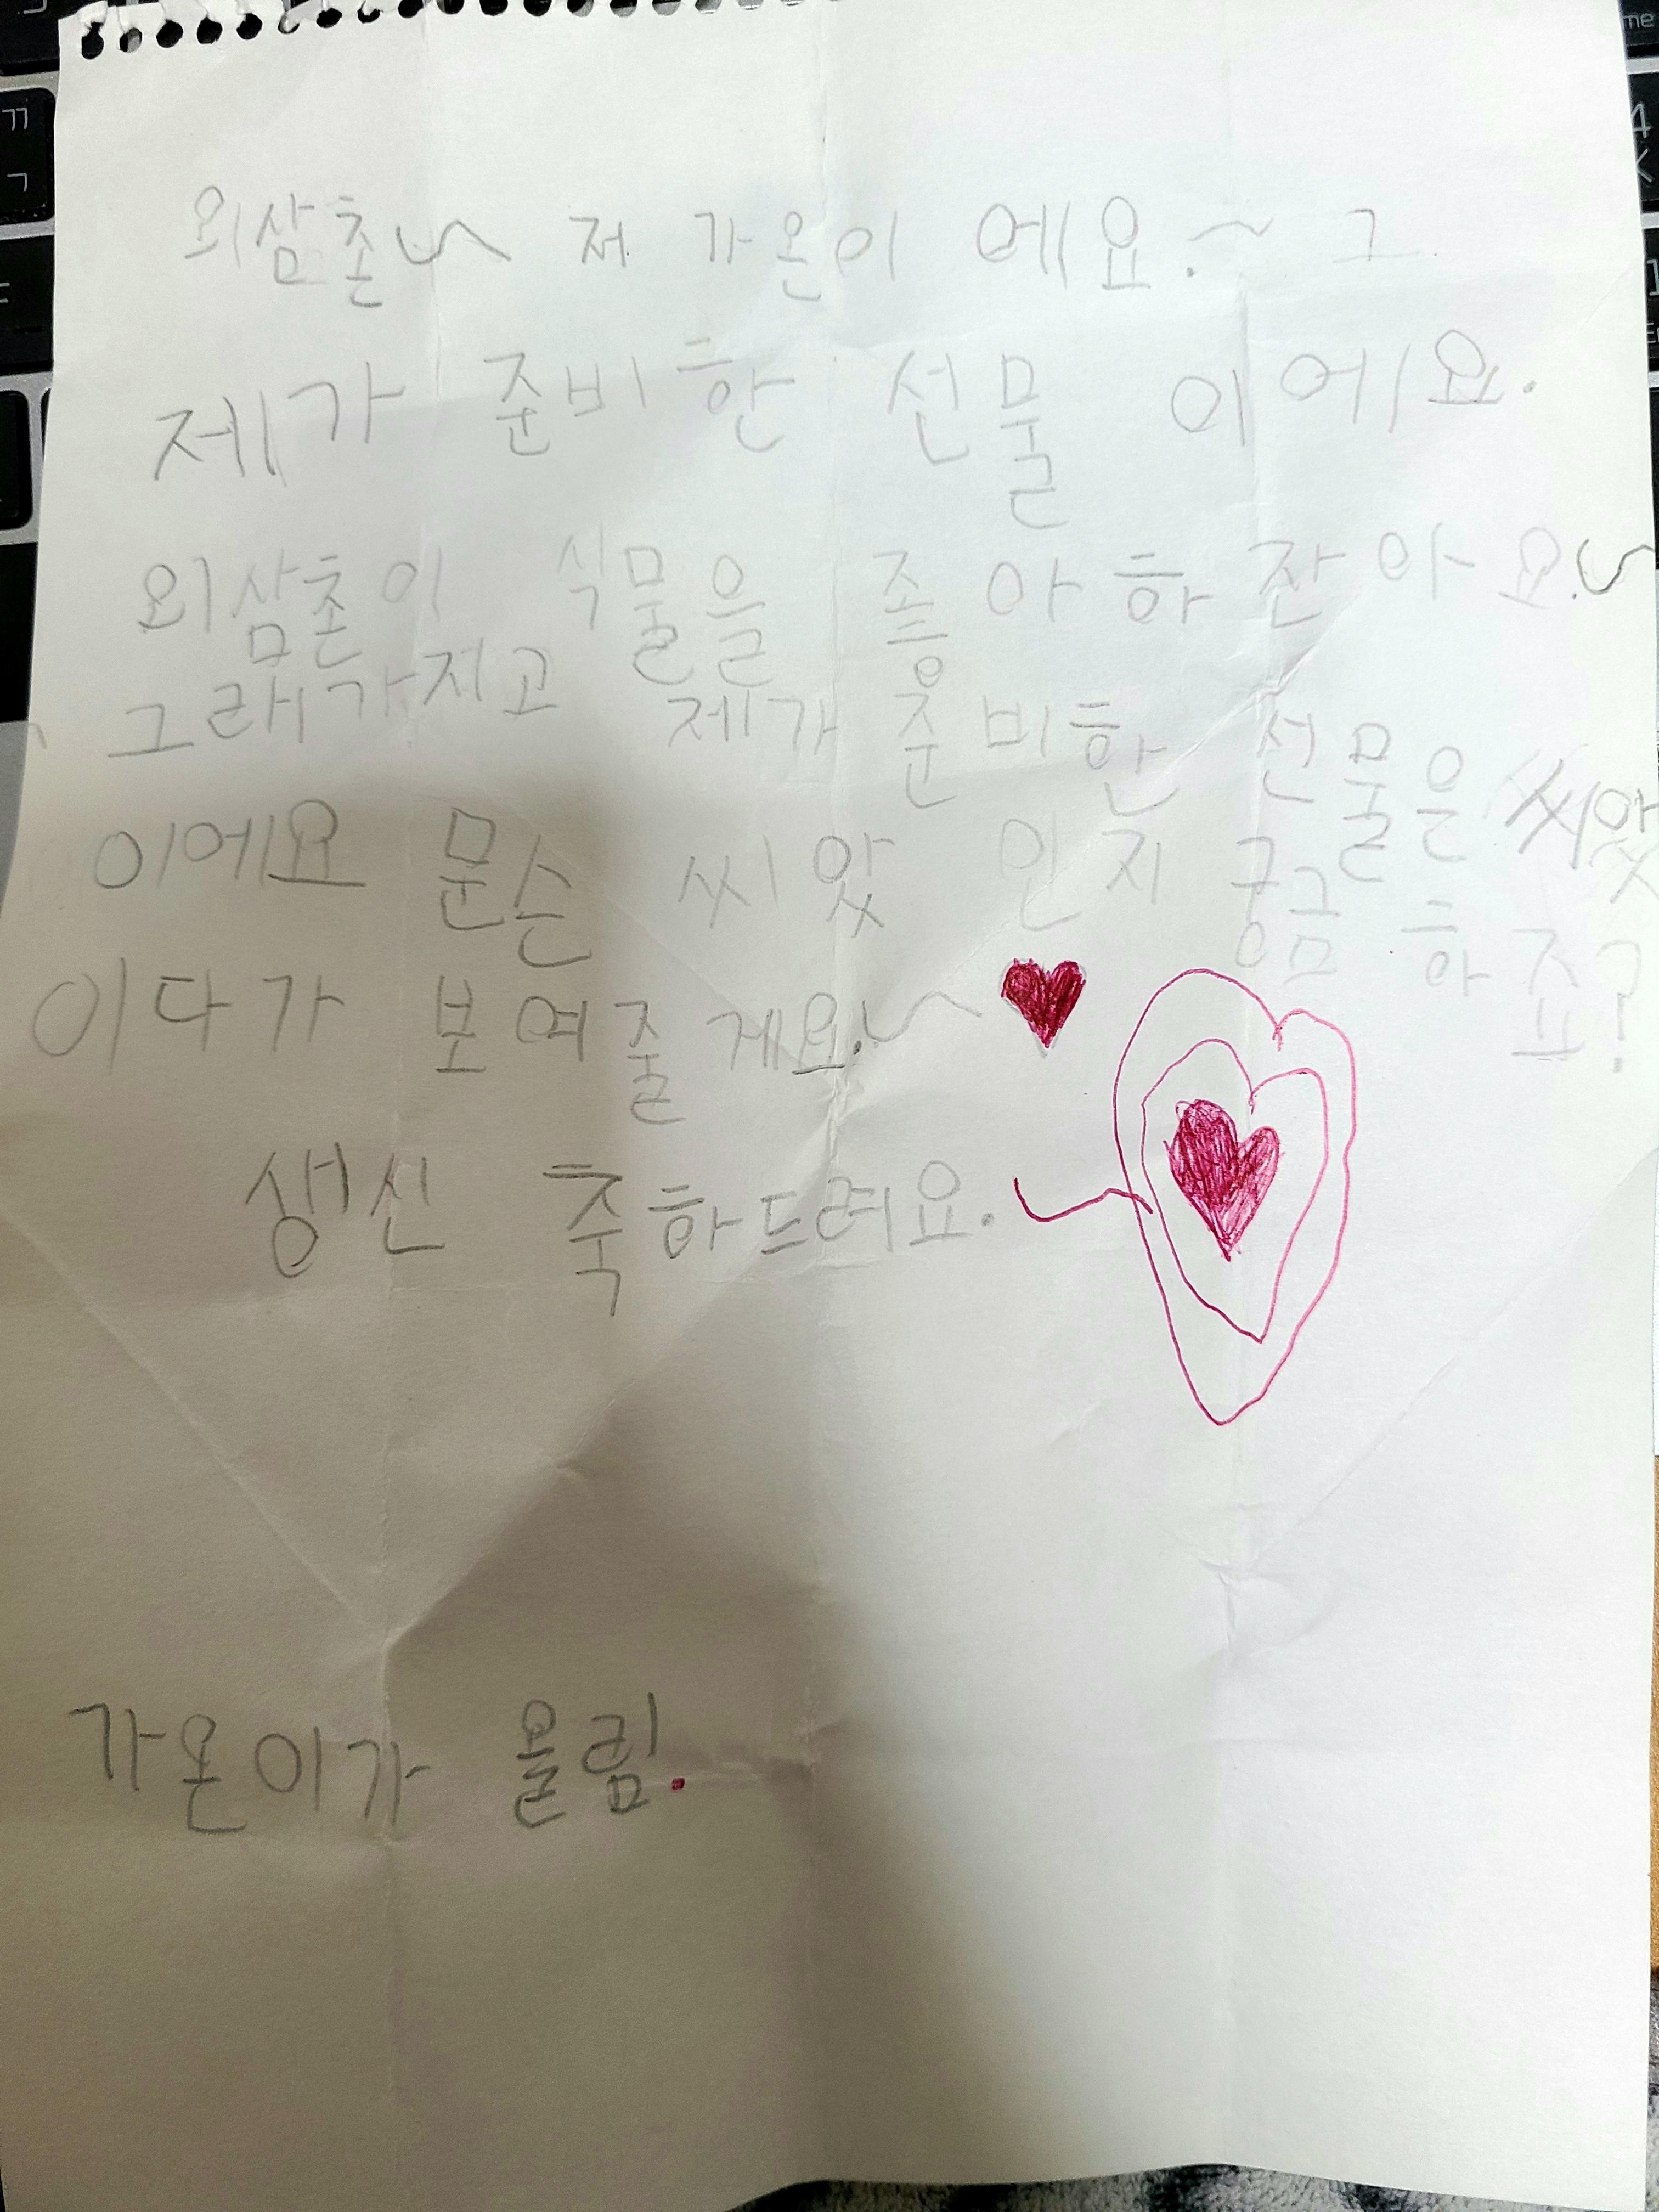 외삼촌~ 저 가온이 에요.~ 그
제가 준비한 선물 이에요.
외삼촌이 식물을 좋아하잖아요~
그래가지고 제가 준비한 선물은 씨앗
이에요 문슨 씨앗 인지 궁금하죠?
이다가 보여줄게요.~
생신 축하드려요.~
가온이가 올림.